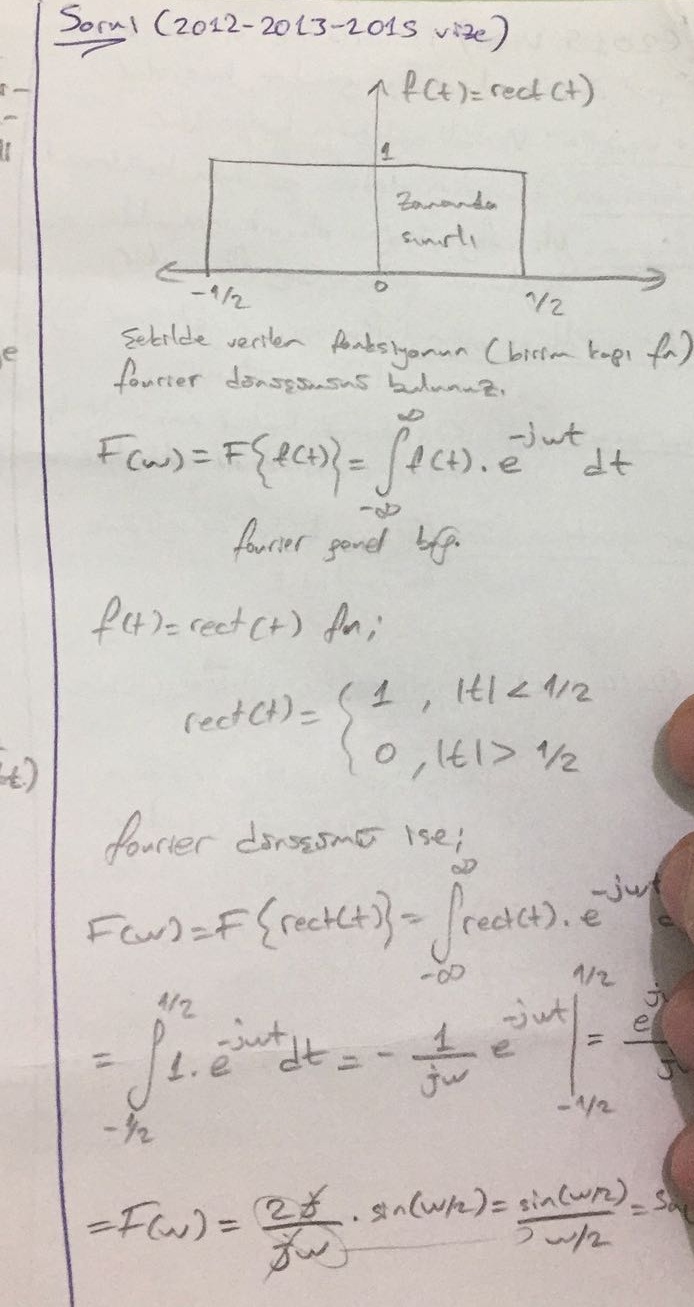 Soru1 (2012-2013-2015 vize)
f(t)=rect(t)
1
Zamanda
sınırlı
-1/2 0 1/2
Şekilde verilen fonksiyonun (birim kapı fn)
fourier dönüşümünü bulunuz.
F(w)=F{f(t)}=∫_{-∞}^{∞} f(t).e^{-jwt} dt
fourier genel bğ.
f(t)=rect(t) fn;
rect(t)={ 1 , |t|<1/2
0 , |t|>1/2
fourier dönüşümü ise;
F(w)=F{rect(t)}=∫_{-∞}^{∞} rect(t).e^{-jwt}
=∫_{-1/2}^{1/2} 1.e^{-jwt} dt = - 1/jw e^{-jwt} |_{-1/2}^{1/2} = e^j
=F(w)= 2j/jw . sin(w/2)= sin(w/2)/w/2 =